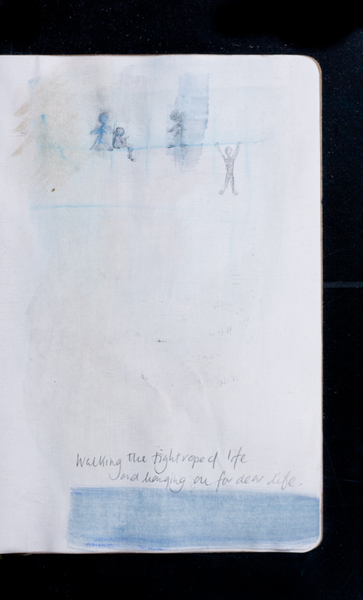 Walking the tightrope of life
and hanging on for dear life.